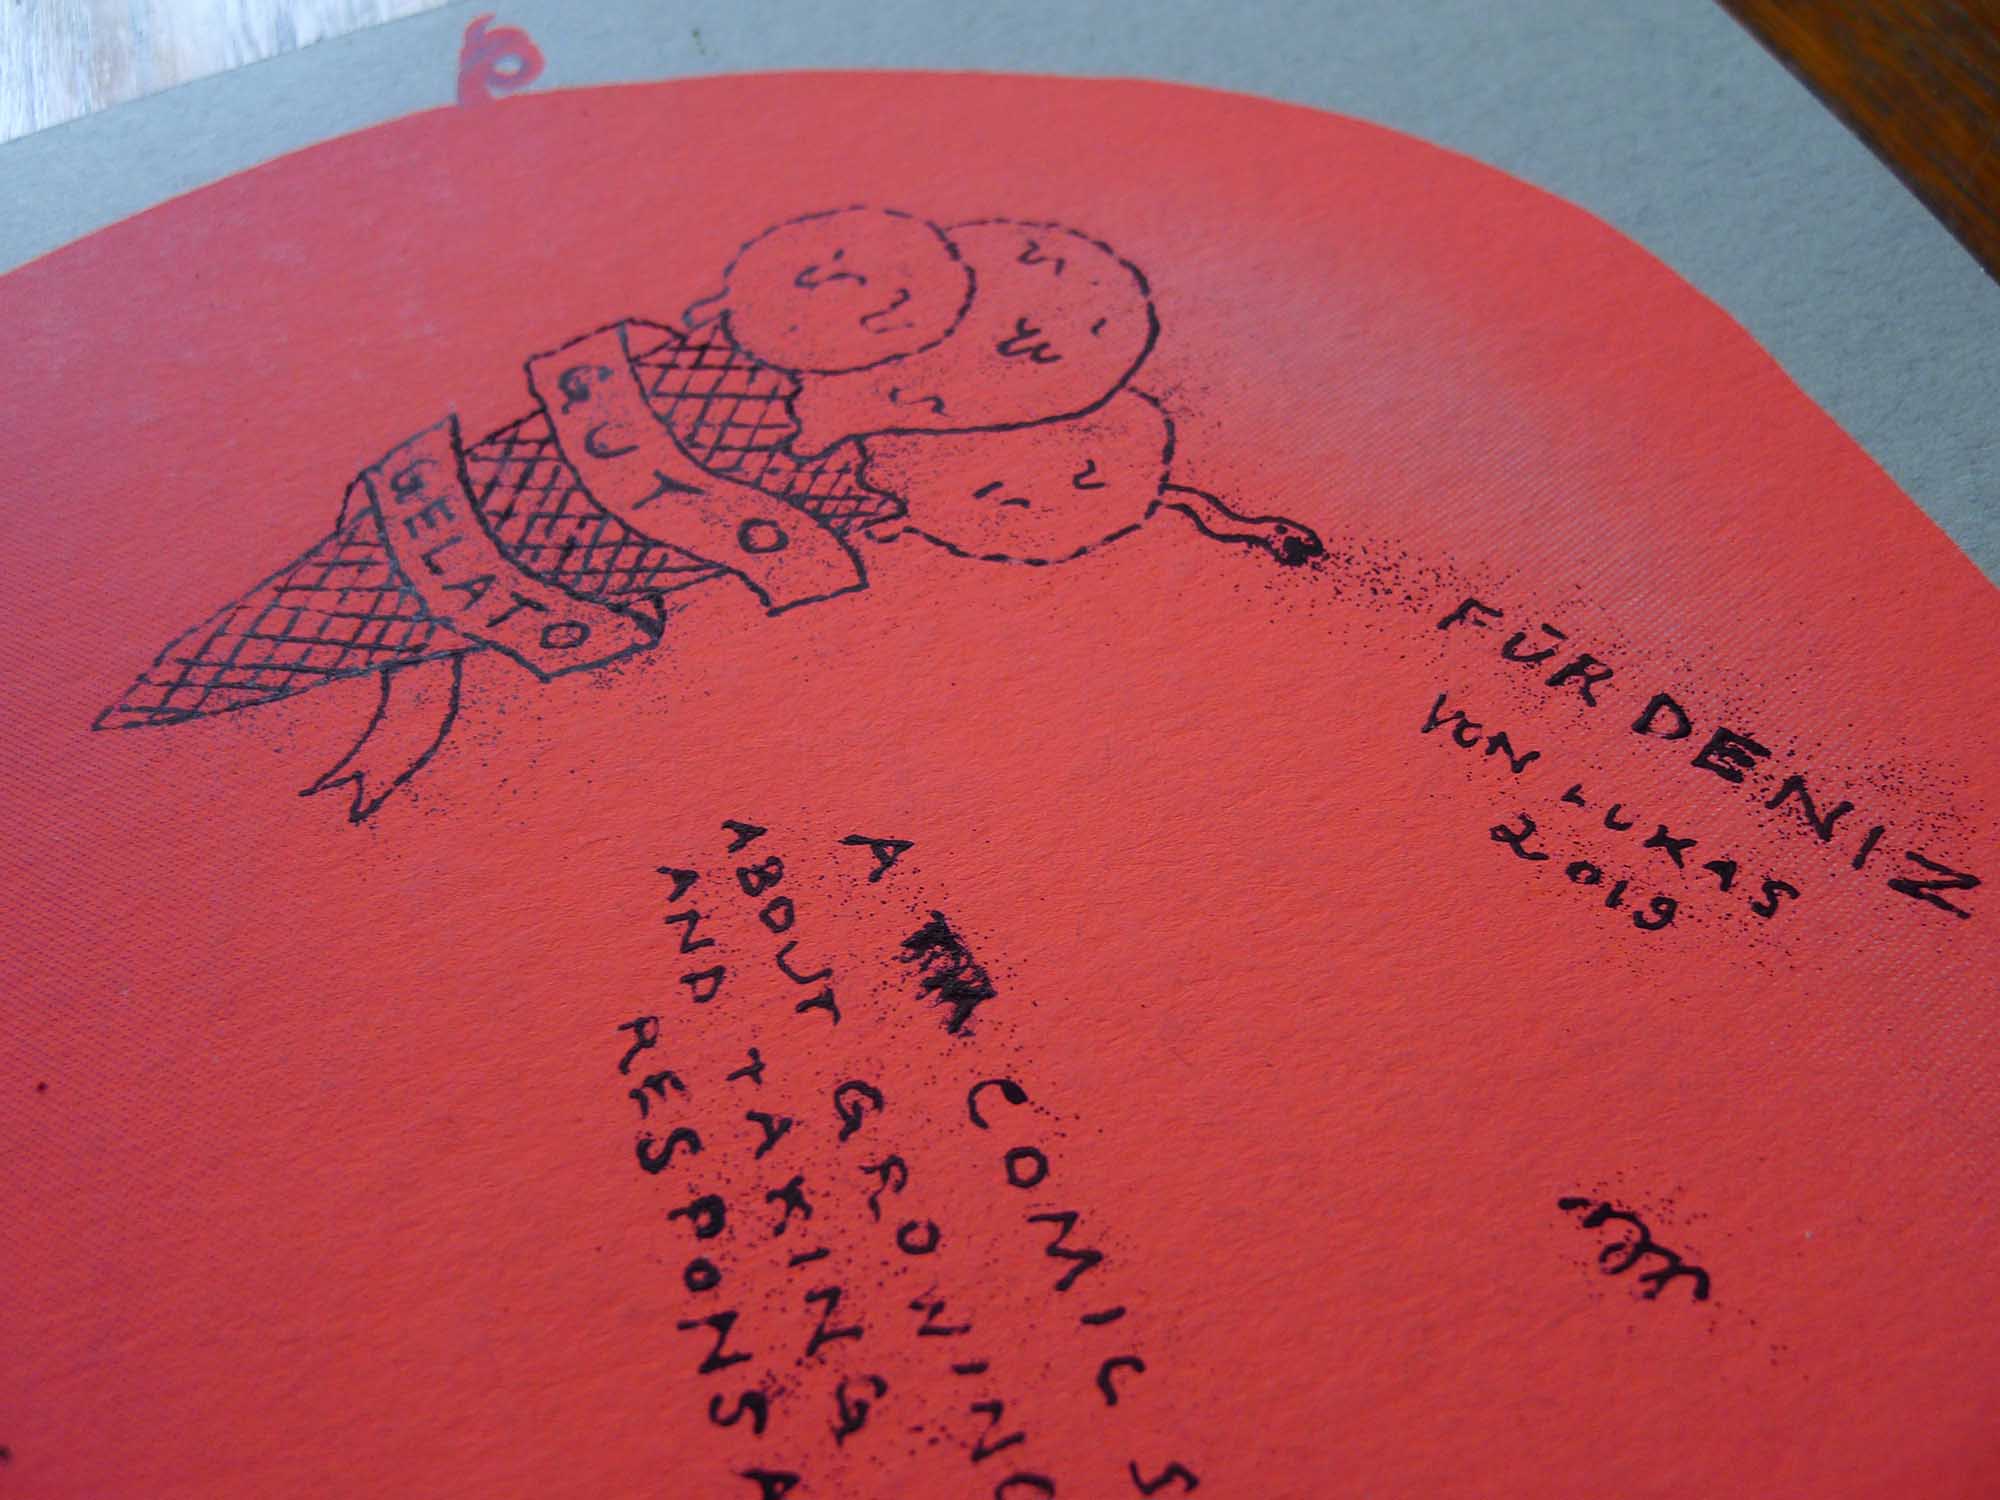 GUTO
GELATO
FÜR DENIZ
VON LUKAS
2019
A COMIC S
ABOUT GROWING
AND TAKING
RESPONSA